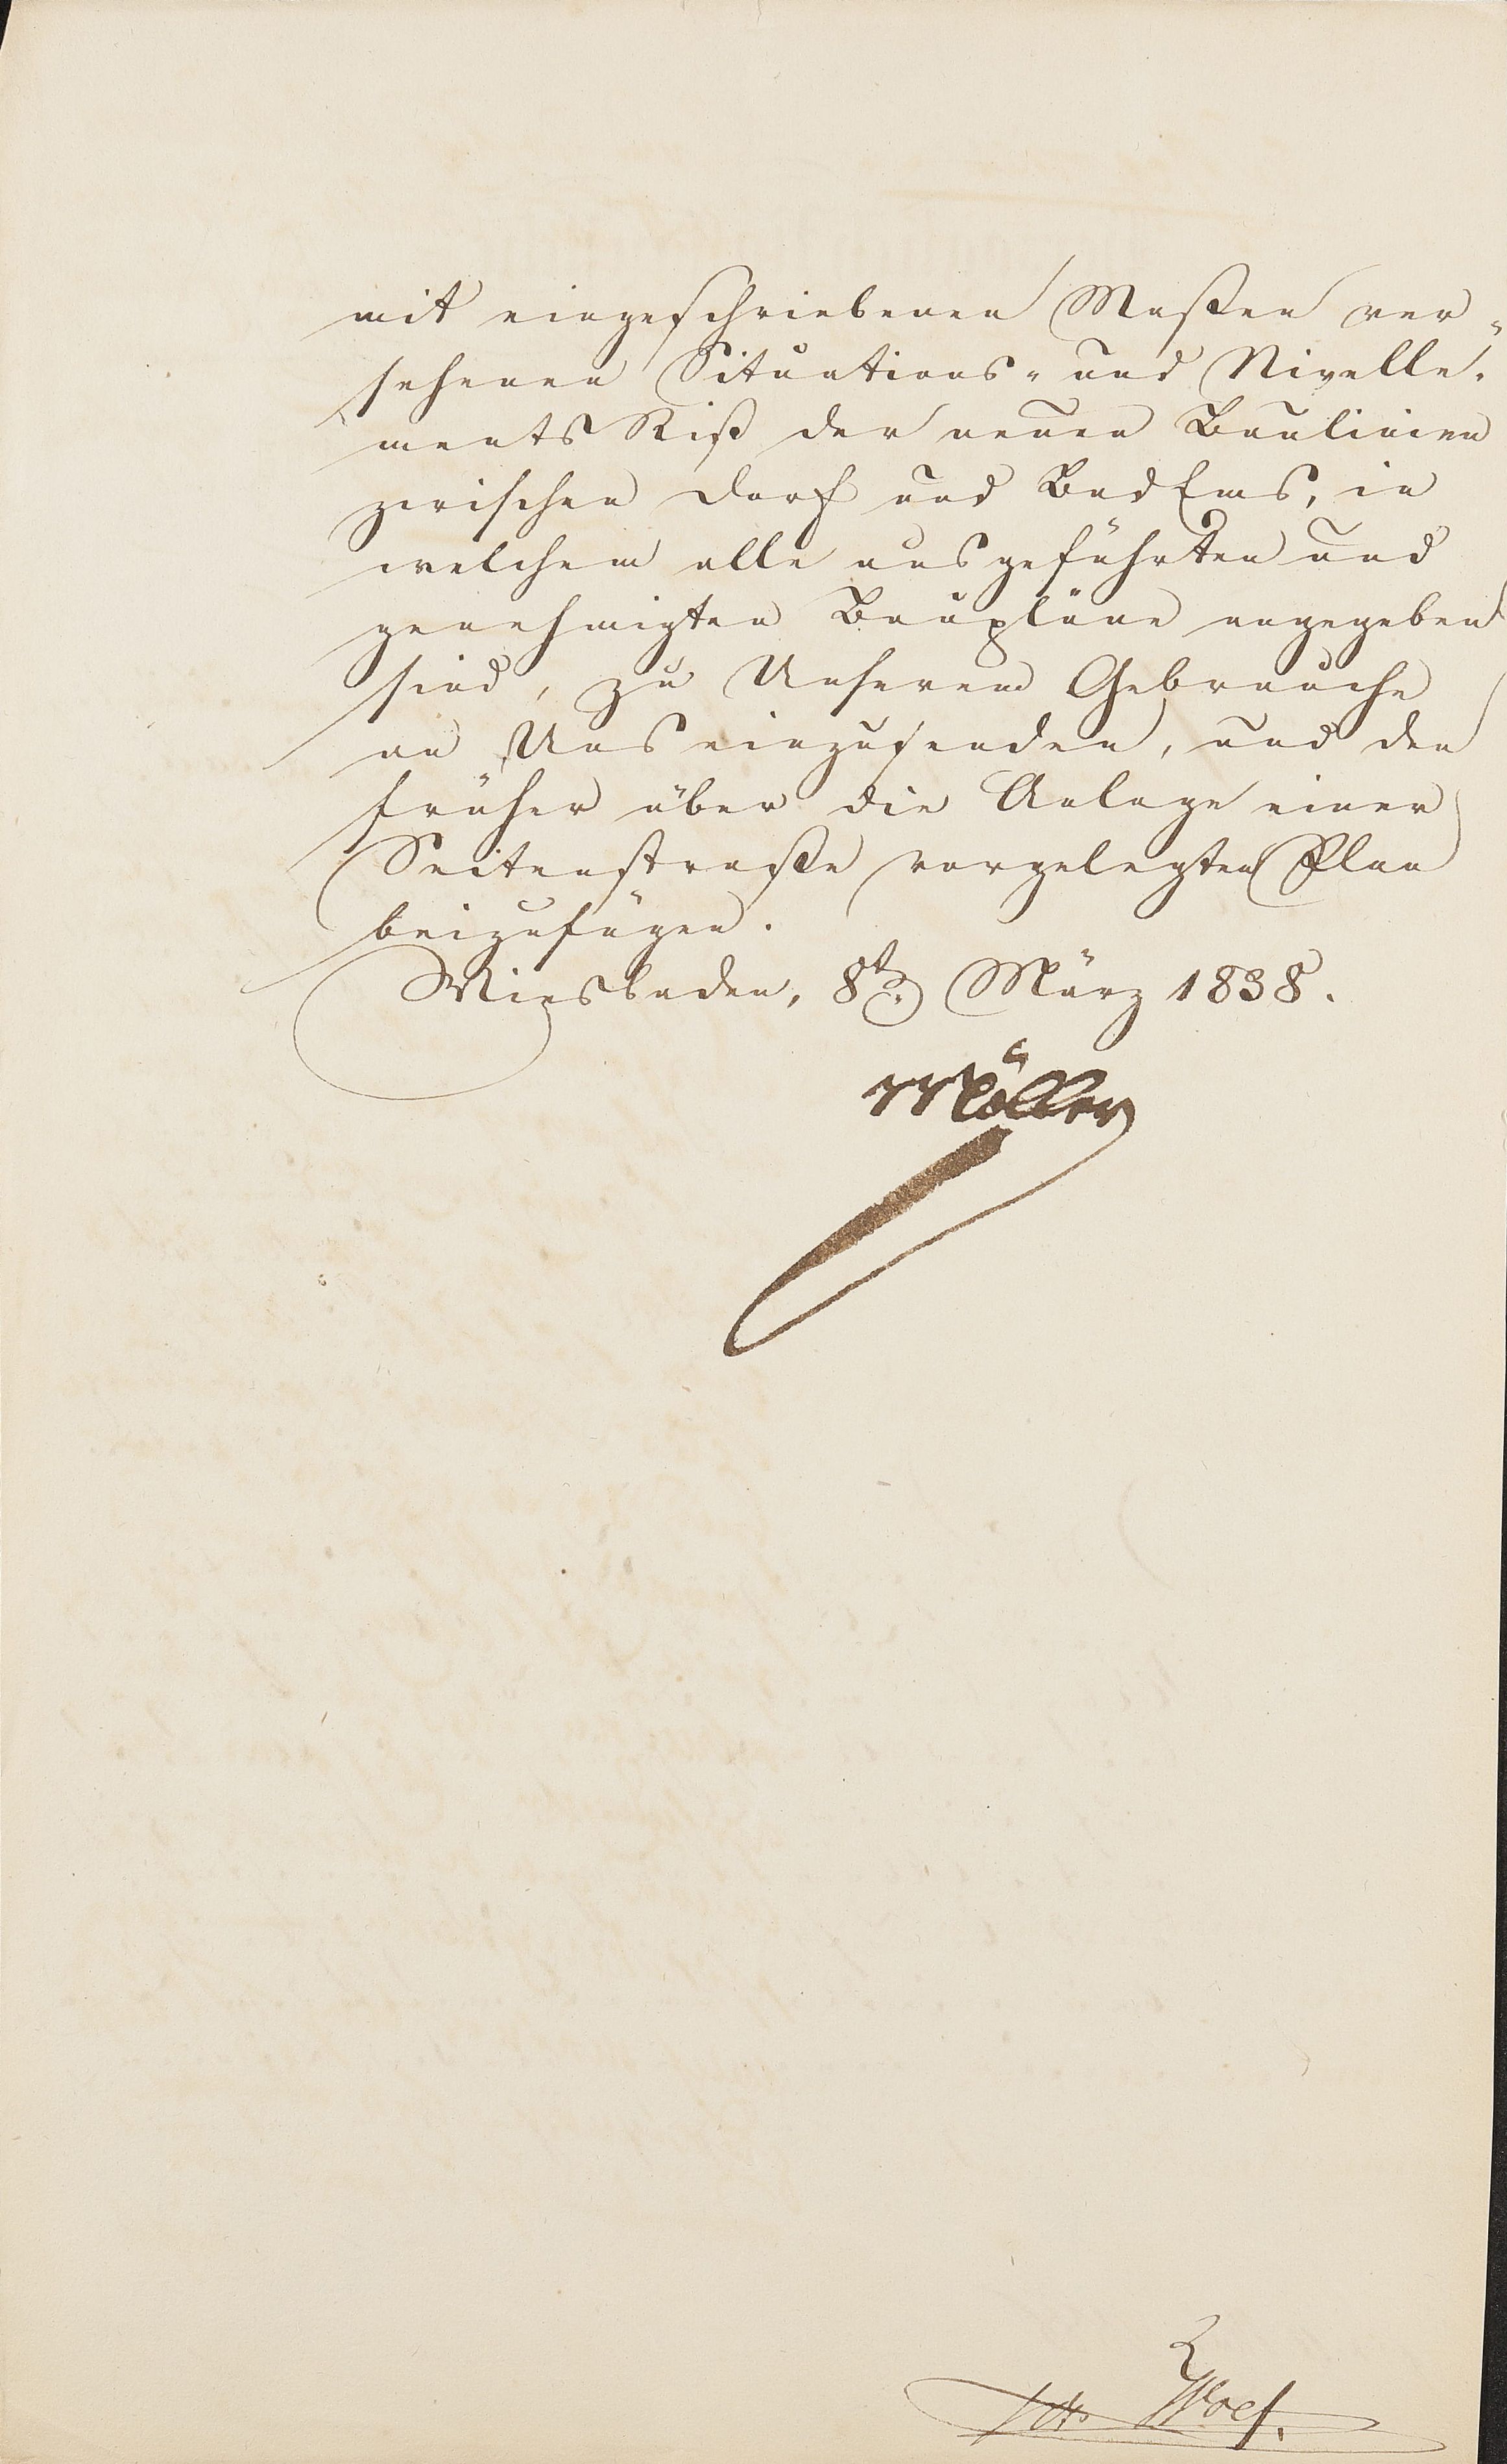 mit eingeschriebenen Maßen ver-
sehenen Situations- und Nivelle-
ments Riß der neuen Baulinien
zwischen Dorf und Bad Ems, in
welchem alle ausgeführten und
genehmigten Baupläne angegeben
sind, zu Unserem Gebrauche
an Uns einzusenden, und den
früher über die Anlage einer
Seitenstraße vorgelegten Plan
beizufügen.
Wiesbaden, 8t. März 1838.
Möller